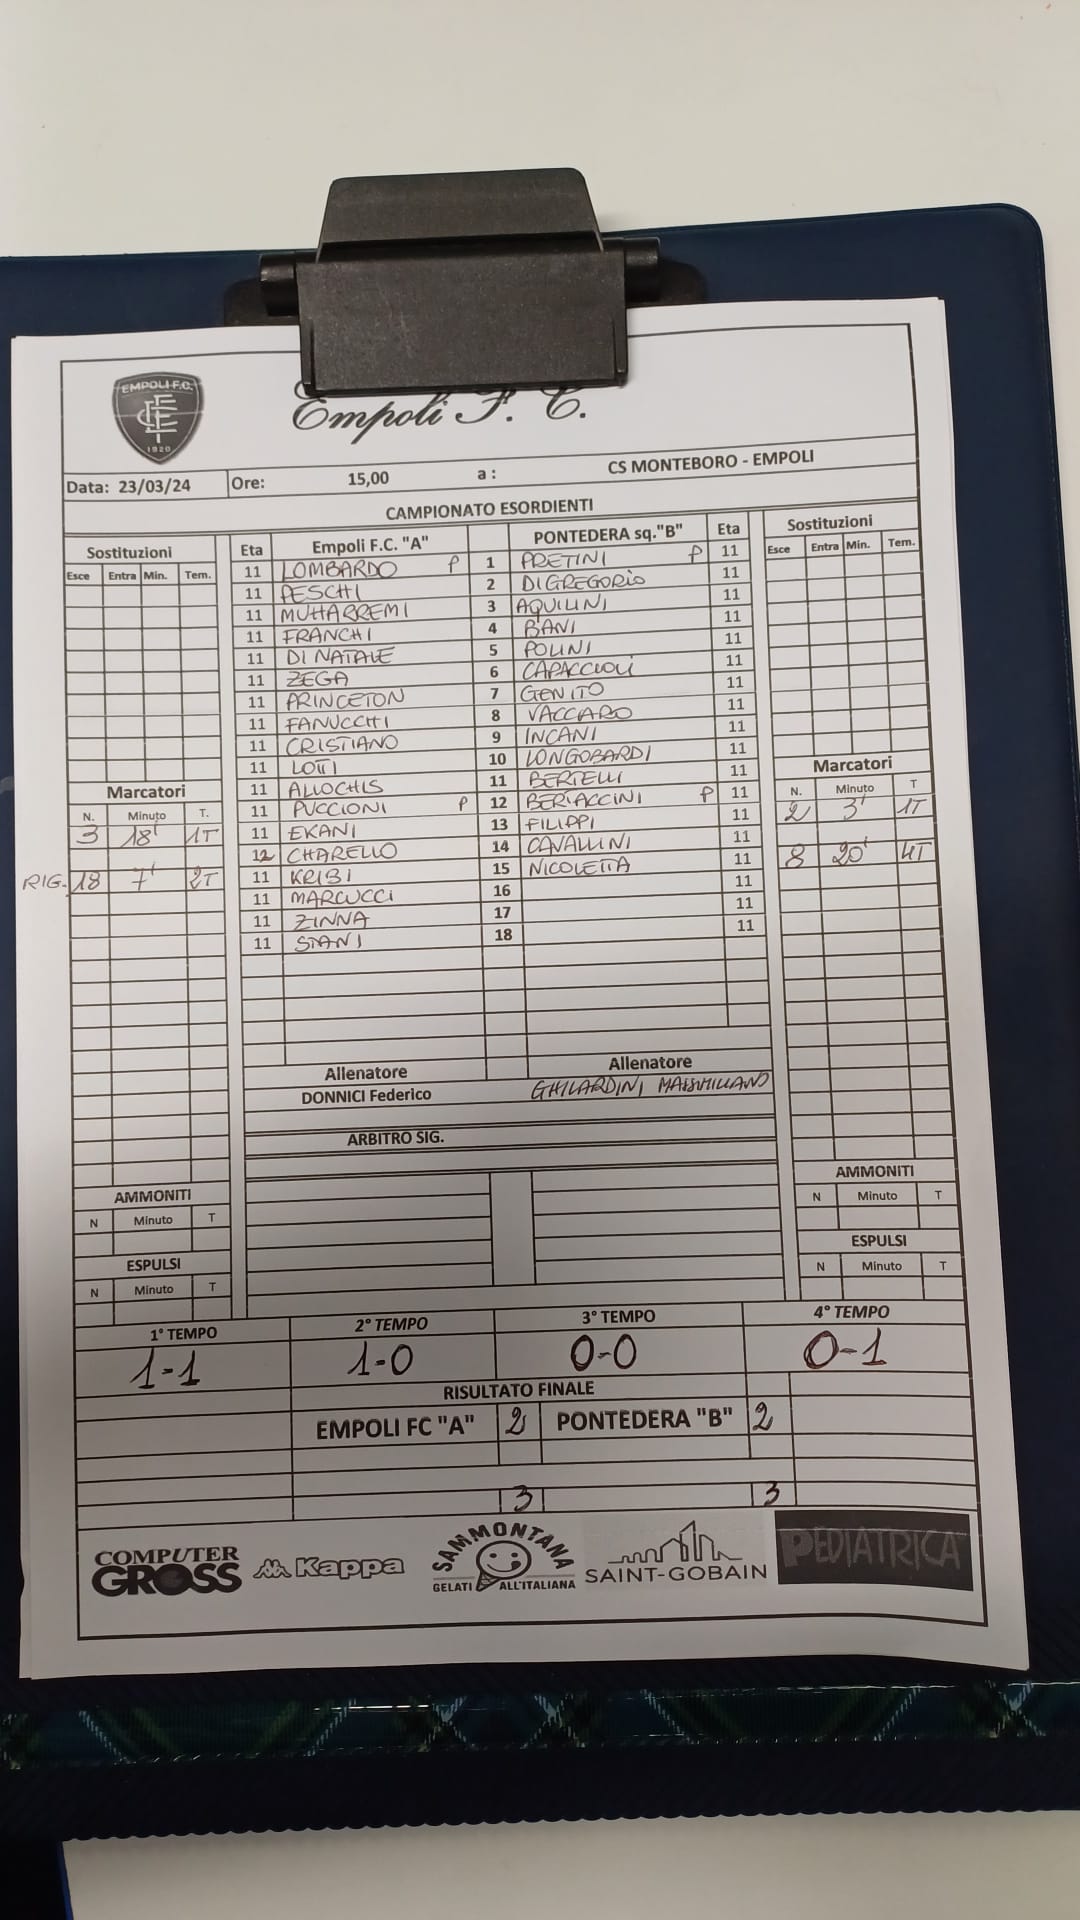 EMPOLI F.C.
1920
Empoli F. C.
Data: 23/03/24 Ore: 15,00 a : CS MONTEBORO - EMPOLI
CAMPIONATO ESORDIENTI
Sostituzioni Eta Empoli F.C. "A" PONTEDERA sq."B" Eta Sostituzioni
Esce Entra Min. Tem. Esce Entra Min. Tem.
11 LOMBARDO P 1 PRETINI P 11
11 PESCHI 2 DI GREGORIO 11
11 MUHARREMI 3 AQUILINI 11
11 FRANCHI 4 BANI 11
11 DI NATALE 5 POLINI 11
11 ZEGA 6 CAPACCIOLI 11
11 PRINCETON 7 GENITO 11
11 FANUCCHI 8 VACCARO 11
11 CRISTIANO 9 INCANI 11
11 LOTTI 10 LONGOBARDI 11
Marcatori 11 ALLOCHIS 11 BERTELLI 11 Marcatori
N. Minuto T. 11 PUCCIONI P 12 BERTACCINI P 11 N. Minuto T
3 18' 1T 11 EKANI 13 FILIPPI 11 2 3' 1T
12 CHARELLO 14 CAVALLINI 11
RIG. 18 7' 2T 11 KRIBI 15 NICOLETTA 11 8 20' 4T
11 MARCUCCI 16 11
11 ZINNA 17 11
11 STANI 18 11
Allenatore Allenatore
DONNICI Federico GHILARDINI MASSIMILIANO
ARBITRO SIG.
AMMONITI AMMONITI
N Minuto T N Minuto T
ESPULSI ESPULSI
N Minuto T N Minuto T
1° TEMPO 2° TEMPO 3° TEMPO 4° TEMPO
1-1 1-0 0-0 0-1
RISULTATO FINALE
EMPOLI FC "A" 2 PONTEDERA "B" 2
3 3
COMPUTER GROSS
Kappa
SAMMONTANA
GELATI ALL'ITALIANA
SAINT-GOBAIN
PEDIATRICA